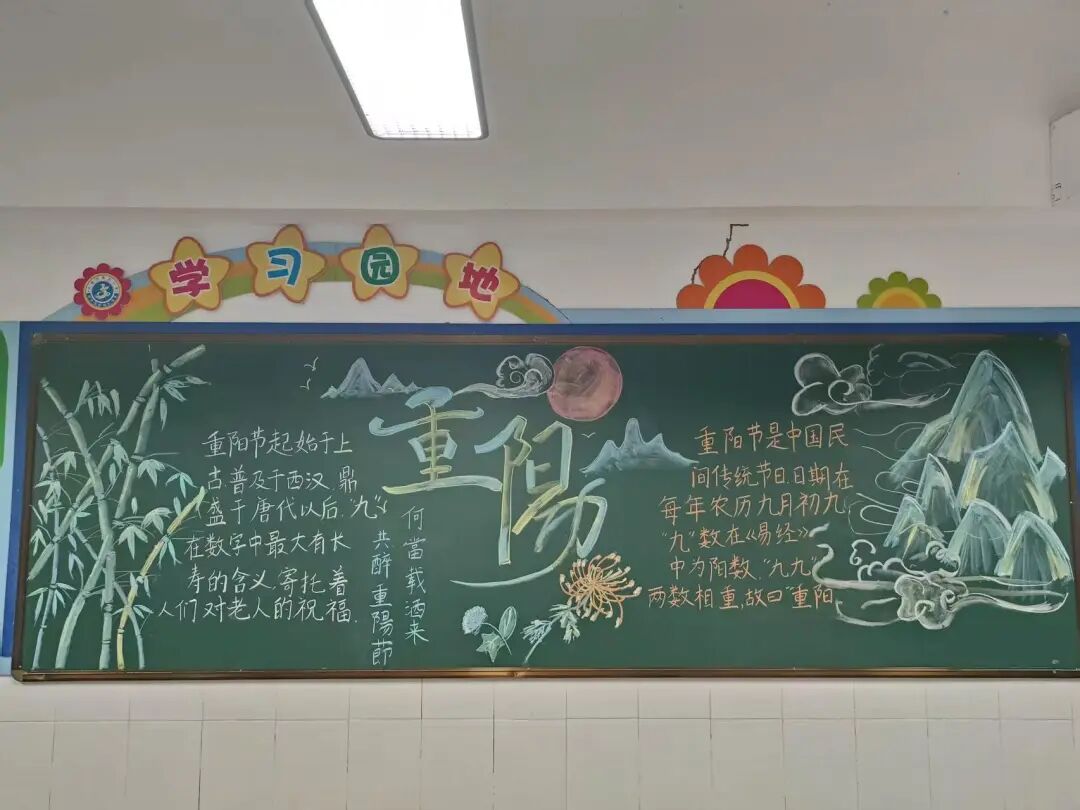 学习园地
重阳节起始于上
古,普及于西汉,鼎
盛于唐代以后,"九",
在数字中最大有长
寿的含义,寄托着
人们对老人的祝福.
重陽
何當载酒来
共醉重陽節
重阳节是中国民
间传统节日.日期在
每年农历九月初九.
"九"数在《易经》
中为阳数,"九九"
两数相重,故曰"重阳